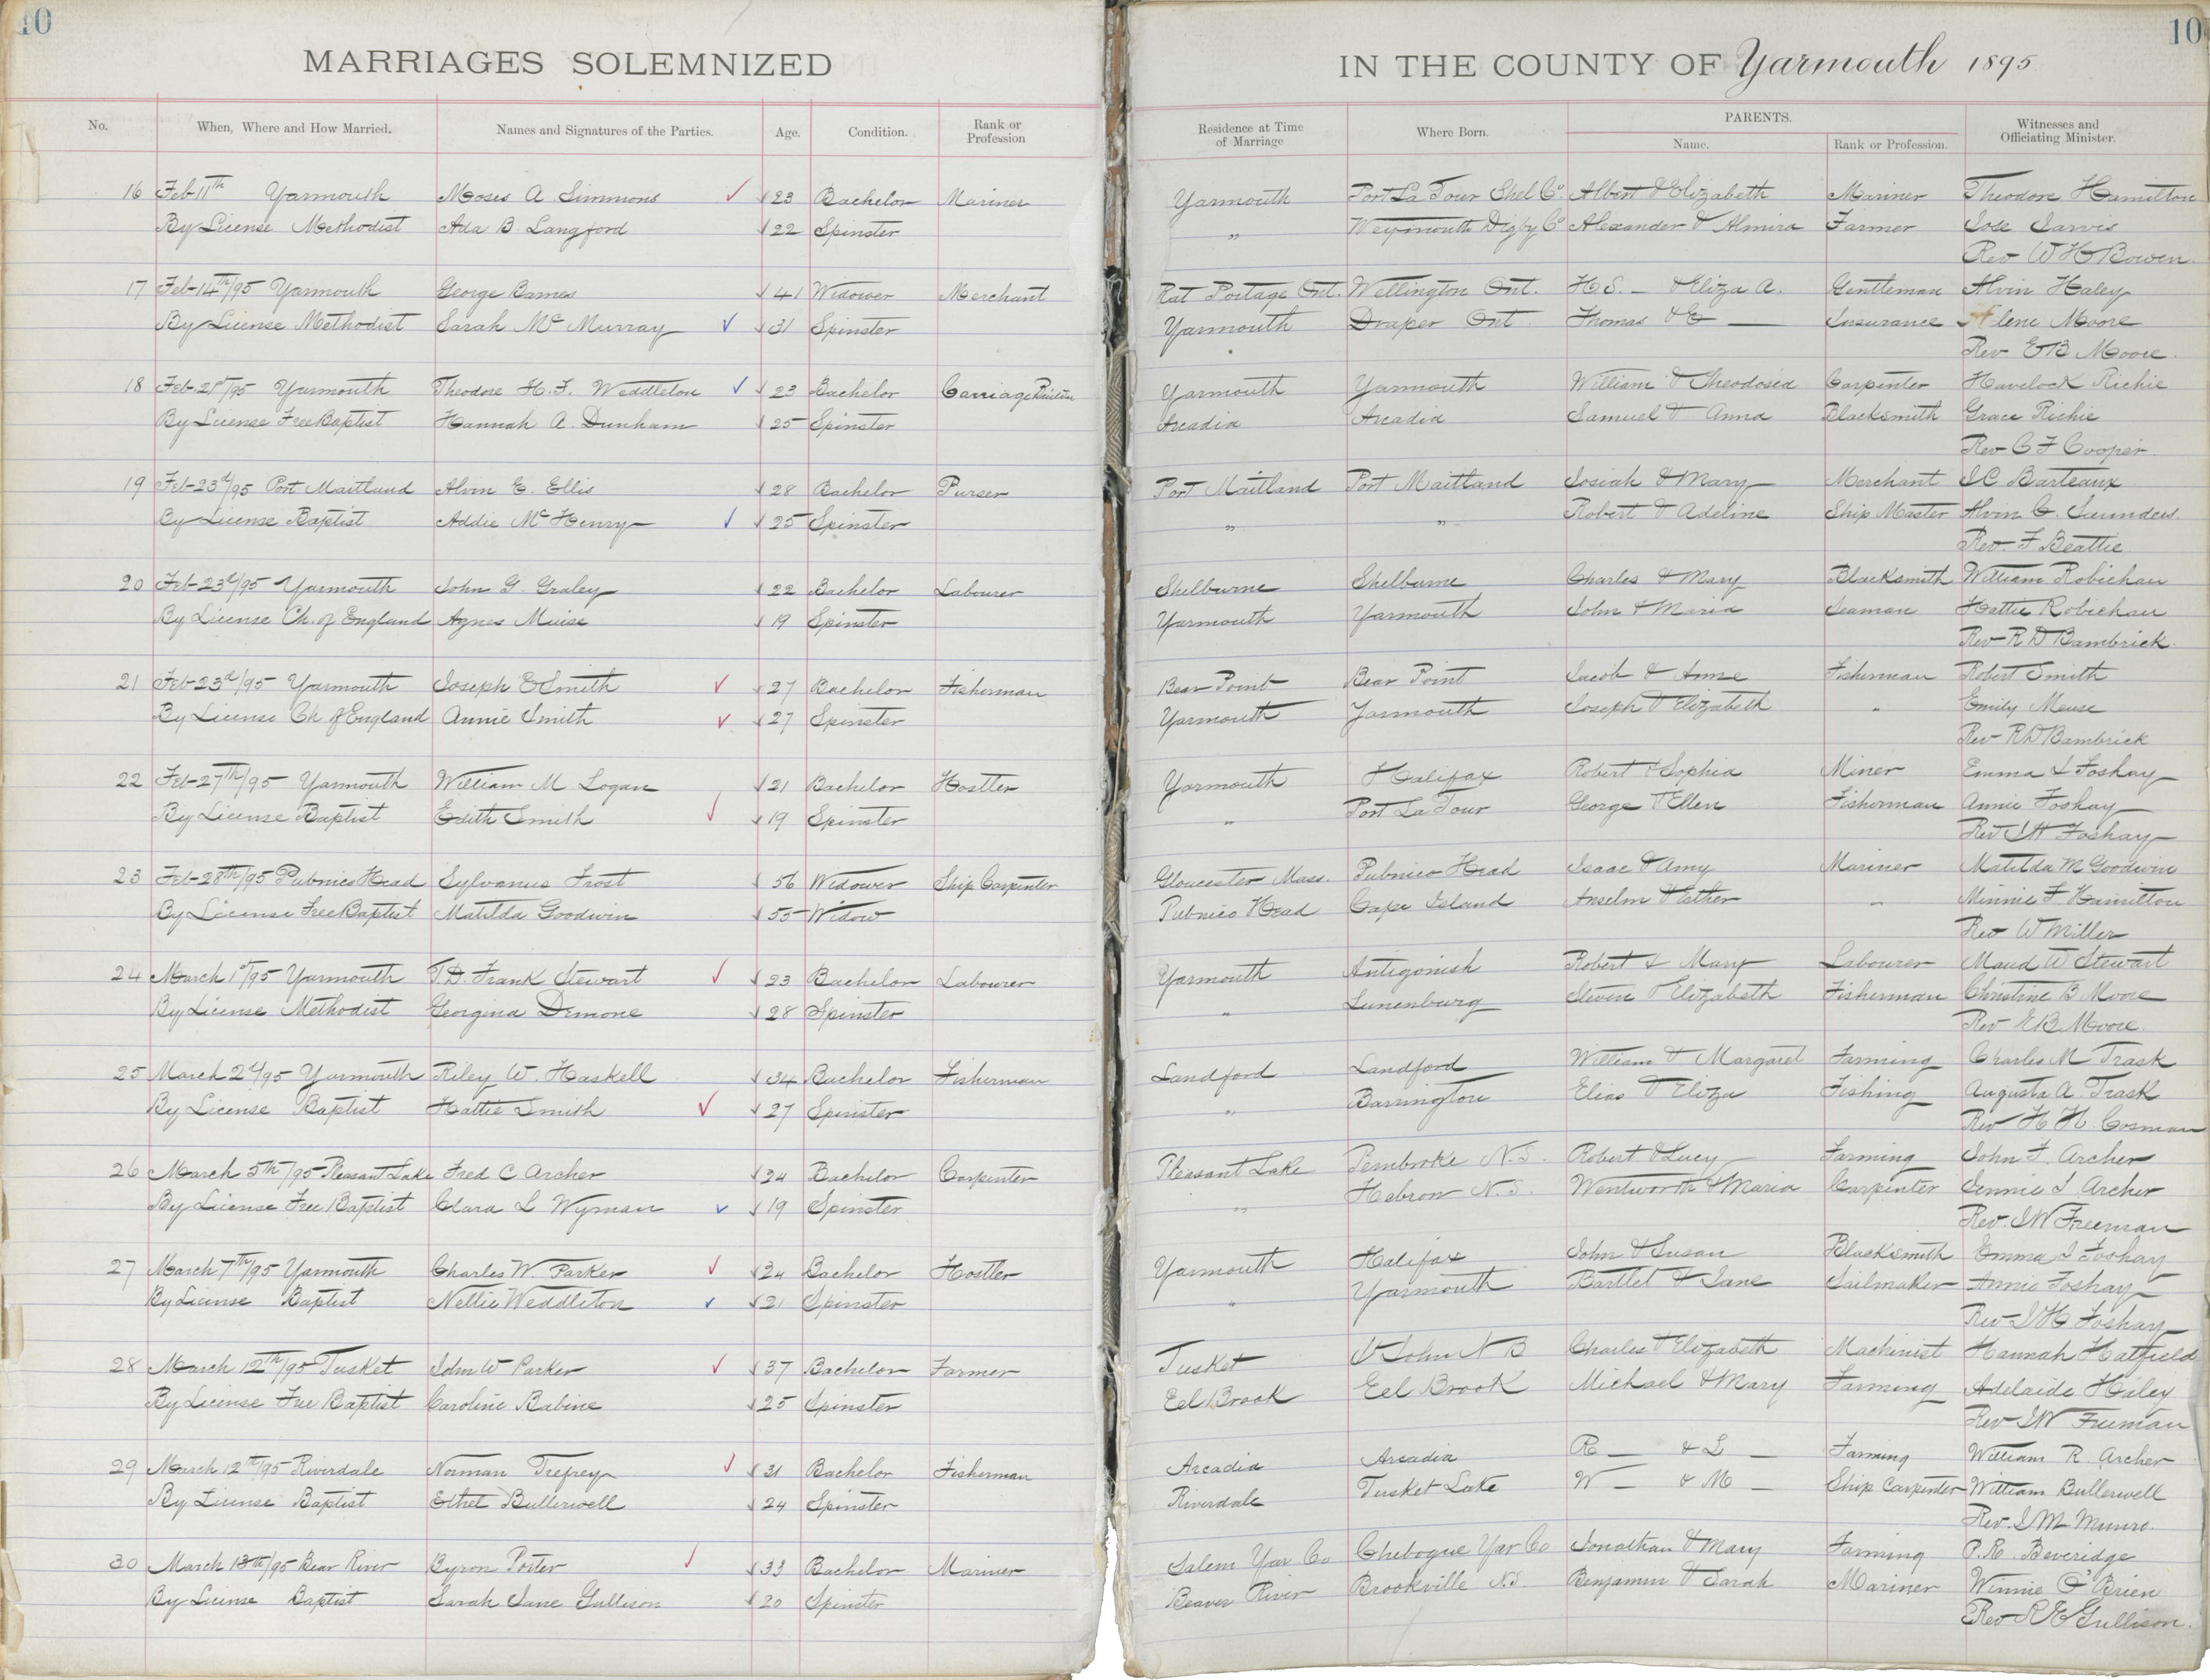 10
MARRIAGES SOLEMNIZED
No. When, Where and How Married. Names and Signatures of the Parties. Age. Condition. Rank or Profession
16 Feb 11th Yarmouth Moses A Simmons 23 Bachelor Mariner
By License Methodist Ada B. Langford 22 Spinster
17 Feb 14th/95 Yarmouth George Barnes 41 Widower Merchant
By License Methodist Sarah McMurray 31 Spinster
18 Feb 21st/95 Yarmouth Theodore H. F. Weddleton 23 Bachelor Carriage Painter
By License Free Baptist Hannah A. Dunham 25 Spinster
19 Feb 23d/95 Port Maitland Alvin E. Ellis 28 Bachelor Purser
By License Baptist Addie McHenry 25 Spinster
20 Feb 23d/95 Yarmouth John G. Graley 22 Bachelor Labourer
By License Ch. of England Agnes Muise 19 Spinster
21 Feb 23d/95 Yarmouth Joseph E Smith 27 Bachelor Fisherman
By License Ch of England Annie Smith 27 Spinster
22 Feb 27th/95 Yarmouth William M Logan 21 Bachelor Hostler
By License Baptist Edith Smith 19 Spinster
23 Feb 28th/95 Pubnico Head Sylvanus Frost 56 Widower Ship Carpenter
By License Free Baptist Matilda Goodwin 55 Widow
24 March 1st/95 Yarmouth T.D. Frank Stewart 23 Bachelor Labourer
By License Methodist Georgina Demone 28 Spinster
25 March 2d/95 Yarmouth Riley W. Haskell 34 Bachelor Fisherman
By License Baptist Hattie Smith 27 Spinster
26 March 5th/95 Pleasant Lake Fred C Archer 24 Bachelor Carpenter
By License Free Baptist Clara L Wyman 19 Spinster
27 March 7th/95 Yarmouth Charles W. Parker 24 Bachelor Hostler
By License Baptist Nellie Weddleton 21 Spinster
28 March 12th/95 Tusket John W Parker 37 Bachelor Farmer
By License Free Baptist Caroline Babine 25 Spinster
29 March 12th/95 Riverdale Norman Trefrey 31 Bachelor Fisherman
By License Baptist Ethel Bullerwell 24 Spinster
30 March 13th/95 Bear River Byron Porter 33 Bachelor Mariner
By License Baptist Sarah Jane Gullison 20 Spinster
10
IN THE COUNTY OF Yarmouth 1895
Residence at Time of Marriage Where Born. PARENTS. Name. Rank or Profession. Witnesses and Officiating Minister.
Yarmouth Port La Tour Shel Co. Albert & Elizabeth Mariner Theodore Hamilton
" Weymouth Digby Co Alexander & Almira Farmer Jose Jarvis
Rev W H Bowen.
Rat Portage Ont. Wellington Ont. H S. — & Eliza A. Gentleman Alvin Haley
Yarmouth Draper Ont Thomas & E — Insurance Moore
Rev E B Moore.
Yarmouth Yarmouth William & Theodosia Carpenter Havelock Richie
Arcadia Arcadia Samuel & Anna Blacksmith Grace Richie
Rev C F Cooper.
Port Maitland Port Maitland Josiah & Mary Merchant J C Barteaux
" " Robert & Adeline Ship Master Alvin C. Saunders
Rev. F Beattie
Shelburne Shelburne Charles & Mary Blacksmith William Robichau
Yarmouth Yarmouth John & Maria Seaman Hattie Robichau
Rev R D Bambrick.
Bear Point Bear Point Jacob & Anne Fisherman Robert Smith
Yarmouth Yarmouth Joseph & Elizabeth " Emily Meuse
Rev R D Bambrick
Yarmouth Halifax Robert & Sophia Miner Emma I Foshay
" Port La Tour George & Ellen Fisherman Annie Foshay
Rev J H Foshay
Gloucester Mass. Pubnico Head Isaac & Amy Mariner Matilda M Goodwin
Pubnico Head Cape Island Anselm & Esther " Minnie F Hamilton
Rev W Miller
Yarmouth Antigonish Robert & Mary Labourer Maud W Stewart
" Lunenburg Steven & Elizabeth Fisherman Christine B Moore
Rev E B Moore.
Sandford Sandford William & Margaret Farming Charles M Trask
" Barrington Elias & Eliza Fishing Augusta A. Trask
Rev H H Cosman
Pleasant Lake Pembroke N.S. Robert & Lucy Farming John F. Archer
" Hebron N.S. Wentworth & Maria Carpenter Jennie I Archer
Rev. J W Freeman
Yarmouth Halifax John & Susan Blacksmith Emma I Foshay
" Yarmouth Bartlet & Jane Sailmaker Annie Foshay
Rev J H Foshay
Tusket St John N B Charles & Elizabeth Machinist Hannah Hatfield
Eel Brook Eel Brook Michael & Mary Farming Adelaide Haley
Rev J W Freeman
Arcadia Arcadia R — & L — Farming William R. Archer
Riverdale Tusket Lake W — & M — Ship Carpenter William Bullerwell
Rev. J M Munro.
Salem Yar Co Chebogue Yar Co Jonathan & Mary Farming P.R. Beveridge
Beaver River Brookville N.S. Benjamin & Sarah Mariner Winnie O'Brien
Rev R E Gullison.